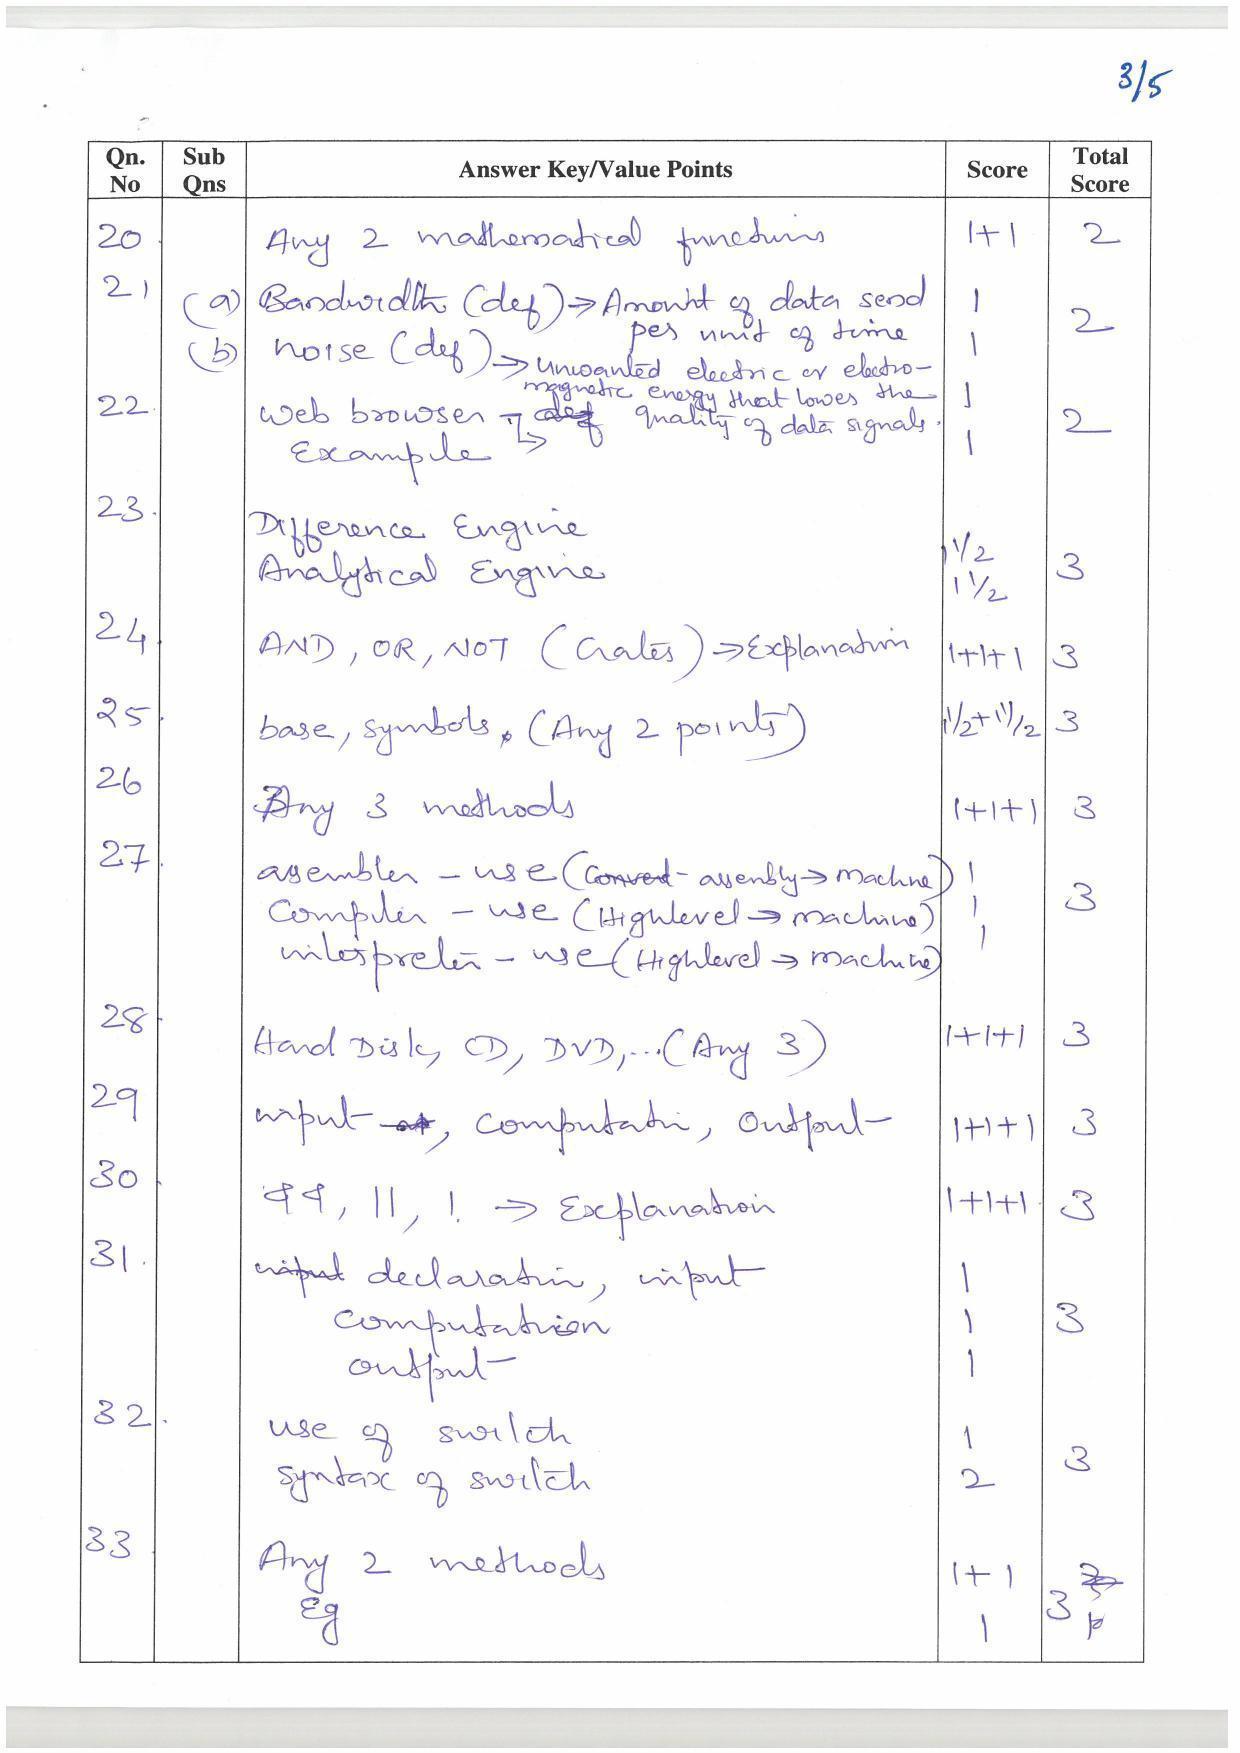 3/5
Qn. No Sub Qns Answer Key/Value Points Score Total Score
20 Any 2 mathematical functions 1+1 2
21 (a) Bandwidth (def) → Amount of data send 1
per unit of time 2
(b) noise (def) → Unwanted electric or electro- 1
magnetic energy that lowes the
quality of data signals.
22. Web browser → def 1
Example 1 2
23. Difference Engine 1 1/2
Analytical Engine 1 1/2 3
24. AND, OR, NOT (Gates) → Explanation 1+1+1 3
25. base, symbols, (Any 2 points) 1 1/2 + 1 1/2 3
26 Any 3 methods 1+1+1 3
27. assembler - use (Convert - assembly → machine) 1
Compiler - use (High level → machine) 1 3
interpreter - use (High level → machine) 1
28. Hard Disk, CD, DVD, ... (Any 3) 1+1+1 3
29 input, Computation, Output 1+1+1 3
30 &&, ||, ! → Explanation 1+1+1 3
31. input declaration, input 1
computation 1 3
output 1
32. use of switch 1
syntax of switch 2 3
33 Any 2 methods 1+1
Eg 1 3